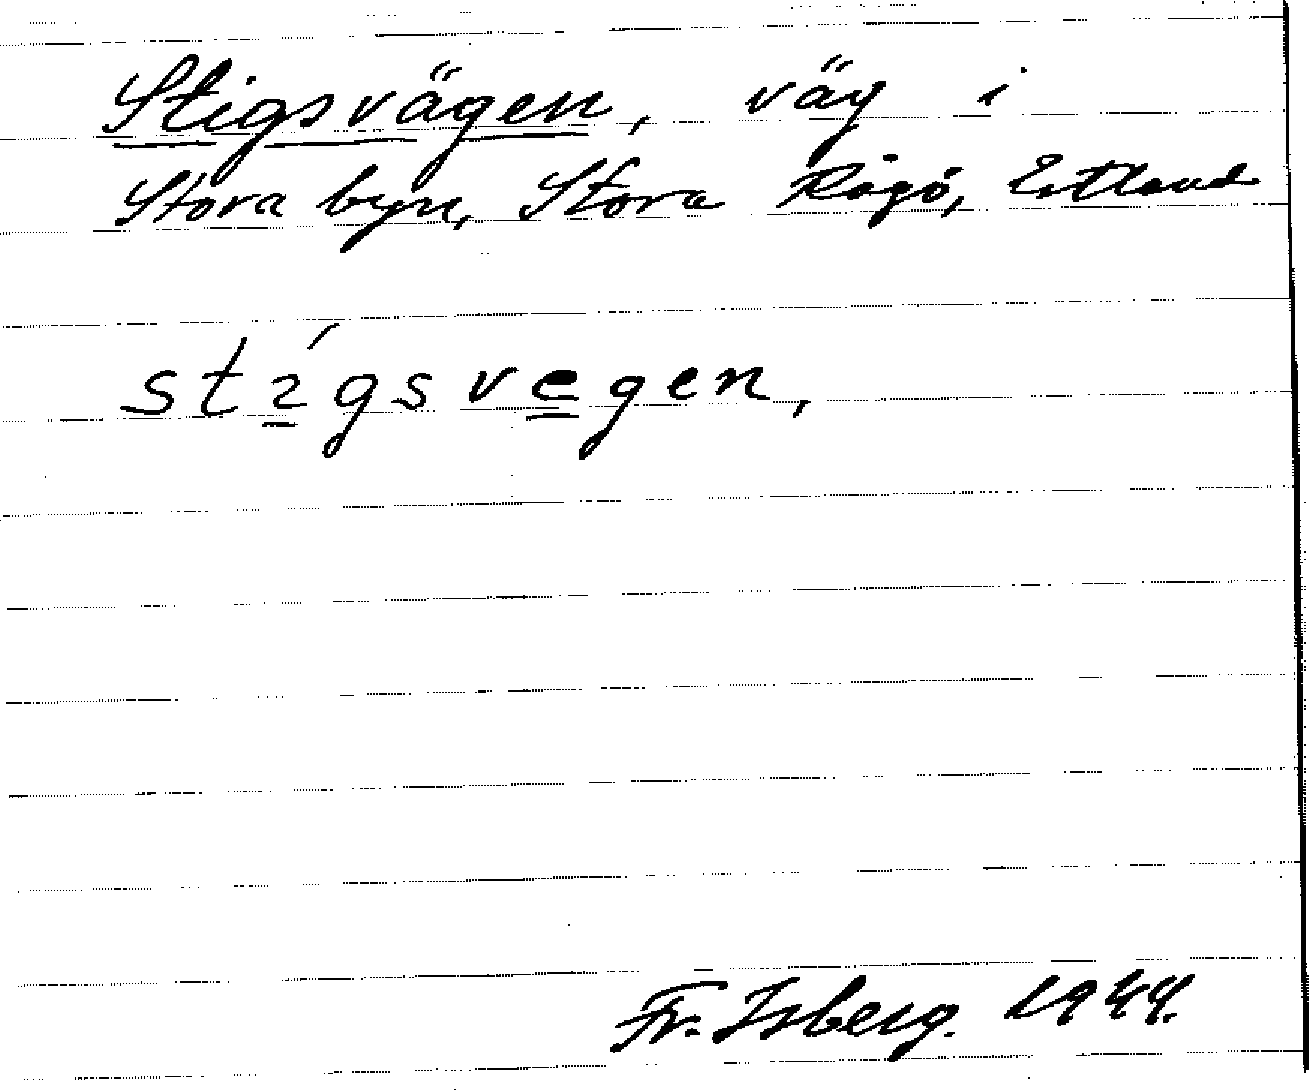 Stigsvägen, väg i
Stora byn, Stora Rågö, Estland
stígsvegen,
Fr. Isberg. 1944.